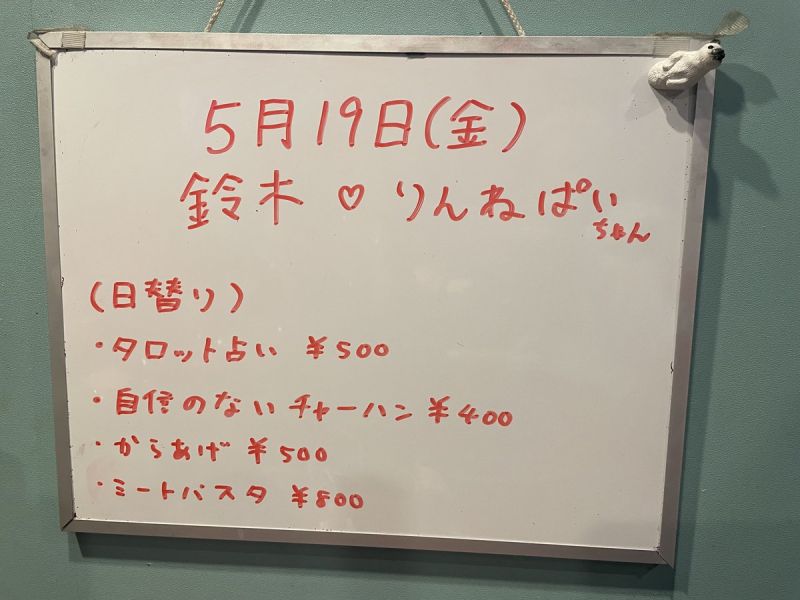 5月19日(金)
鈴木♡りんねぱい
ちゃん
(日替り)
・タロット占い ¥500
・自信のないチャーハン ¥400
・からあげ ¥500
・ミートパスタ ¥800